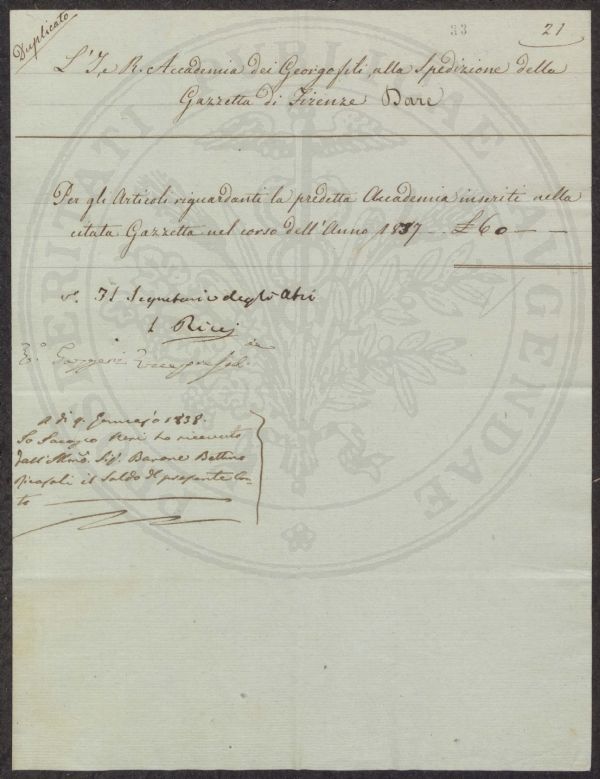 Duplicato
33
21
L'I. e R. Accademia dei Georgofili alla Spedizione della
Gazzetta di Firenze Dare
Per gli Articoli riguardanti la predetta Accademia inseriti nella
citata Gazzetta nel corso dell'Anno 1837 - £ 60 - -
vº. Il Segretario degli Atti
L Ricci
Vº. Gazzeri Vicepresid.te
A dì 9. Gennajo 1838.
Io Neri ho ricevuto
dall'Illmo. Sig. Barone Bettino
Ricasoli il Saldo del presente Con-
to
PROSPERITATI PUBLICAE AUGENDAE